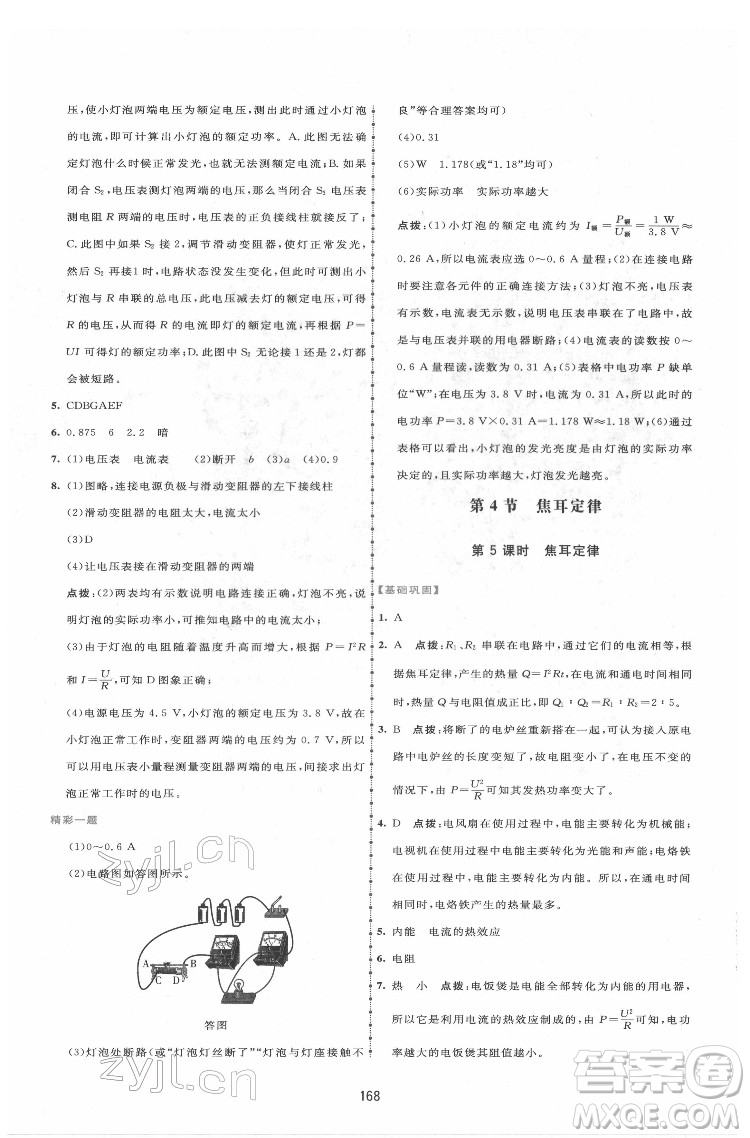 压，使小灯泡两端电压为额定电压，测出小灯泡
的电流，即可计算出小灯泡的额定功率。A. 此图无法确
定灯泡什么时候正常发光，只能测灯泡的额定电流，所以
此
解除 S₂，电压表测灯泡两端的电压，当合上 S₁ 电压表
测电阻 R 两端的电压，电压表的正负接线柱就反了；
C. 此图中 S₂ 接 2，调节滑动变阻器，使灯正常发光，
S₂ 再接 1 时，电路状态没发生变化，但电压表测的是
灯泡与 R 串联的总电压，电压减去灯的额定电压，即
R 的电压，R 的电流即灯的额定电流，再根据 P＝
UI 可得灯的额定功率；D. 此图 S₂ 无论接 1 还是 2，灯都
会被短路。
5. CDBGAEF
6. 0.875 6 2.2 暗
7. (1)电压表 电流表 (2)断开 b (3)a (4)0.9
8. (1)图略；连接电源负极与滑动变阻器的左下接线柱
(2)滑动变阻器的电阻太大，电流太小
(3)D
(4)让电压表连接在滑动变阻器的两端
点拨：(2)两表均有示数说明电路连接正确，灯泡不亮，说
明灯泡的实际功率太小，可推知电路中的电流太小；
(3)由于灯泡的电阻随着温度升高而增大，根据 P＝I²R
和 I＝U/R，可判断 D 图象正确；
(4)电源电压为 4.5 V，小灯泡额定电压为 3.8 V，故小灯
泡正常工作时，变阻器两端电压约为 0.7 V，所以用电
压表的小量程测量变阻器两端的电压，同样可以得出灯
泡正常工作时的电压。
精彩一题
(1)0～0.6 A
(2)电路图如答图所示。
A B
C D
答图
(3)灯泡处断路(或“灯泡灯丝断了”“灯泡与灯座接触不
良”等合理答案均可)
(4)0.31
(5)W 1.178(或“1.18”均可)
(6)实际功率 实际功率越大
点拨：(1)小灯泡的额定电流约为 I额＝P额/U额＝1 W/3.8 V≈
0.26 A，所以电流表应选 0～0.6 A 量程；(2)在连接电路
时要注意各元件的正确连接方法；(3)灯泡不亮，电压表
有示数，电流表无示数，说明电压表串联在了电路中，故
是与电压表并联的用电器断路；(4)电流表的读数按
0.6 A 量程读，读数为 0.31 A；(5)表格中电功率 P 缺单
位“W”；当电压为 3.8 V 时，电流为 0.31 A，此时灯泡的
电功率 P＝3.8 V×0.31 A＝1.178 W≈1.18 W；(6)由
表格可以看出，小灯泡的发光亮度是由灯泡的实际功率
决定的，且实际功率越大，灯泡发光越亮。
第 4 节 焦耳定律
第 5 课时 焦耳定律
【基础巩固】
1. A
2. A 点拨：R₁、R₂ 串联在电路中，通过它们的电流相等，根
据焦耳定律，产生的热量 Q＝I²Rt，在通电时间相等的情
况下，热量 Q 与电阻值成正比，即 Q₁∶Q₂＝R₁∶R₂＝2∶5。
3. B 点拨：将断了的电炉丝重新搭在一起，当接入原电
路中电炉丝的长度变短了，故电阻变小了，在电压不变的
情况下，由 P＝U²/R 可知其发热功率是变大的。
4. D 点拨：电风扇在使用过程中，电能主要转化为机械能；
电视机在使用过程中，电能主要转化为光能和声能；电烙铁
在使用过程中，电能主要转化为内能，所以在通电时间相同
时，电烙铁产生的热量最多。
5. 内能 电流的热效应
6. 电阻
7. 热 小 点拨：电饭煲是电能全部转化为内能的用电器，
所以它是利用电流的热效应制成的，根据 P＝U²/R 可知，电功
率越大的电饭煲其阻值越小。
168
zyjl.cn
zyjl.cn
答案圈
MXQE.COM